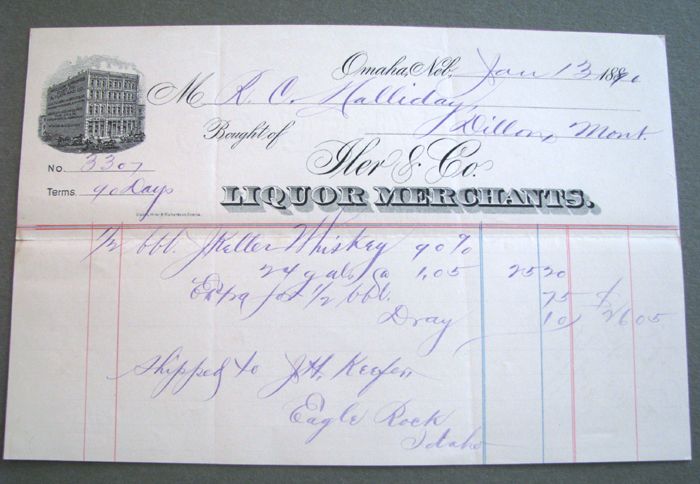 Omaha, Neb., Jan 13 1890
M R. C. Halliday,
Bought of Dillon, Mont.
Iler & Co.
No. 3307
Terms. 90 Days
LIQUOR MERCHANTS.
1/2 bbl. J Keller Whiskey 90%
24 gals @ 1,05 25 20
Extra for 1/2 bbl. 75
Dray 10 26 05
Shipped to J H. Keefer
Eagle Rock
Idaho